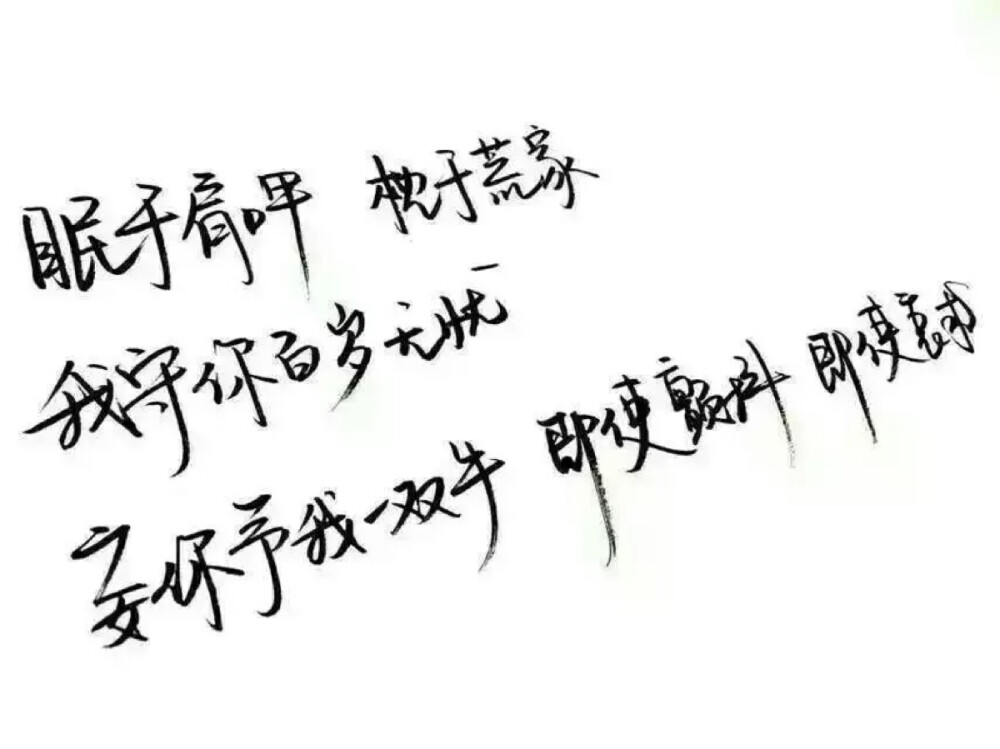 眠于肩胛 枕于荒冢
我守你百岁无忧
要你予我一双手 即使颤抖 即使哀求